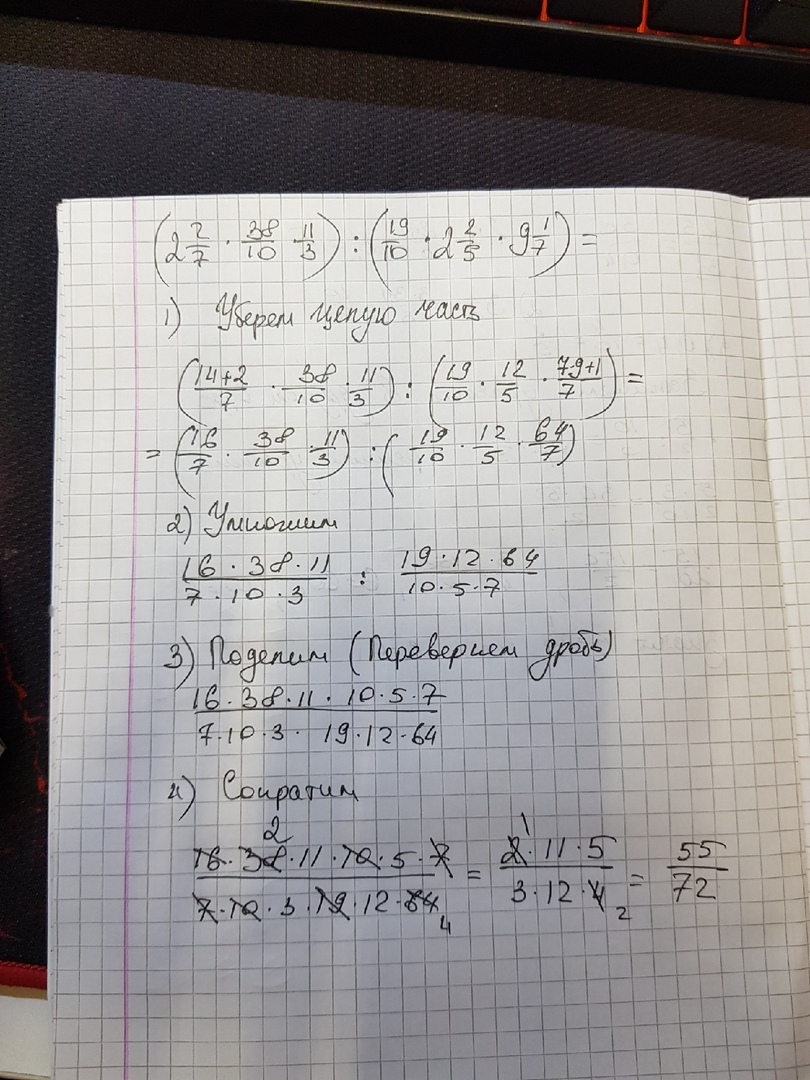 (2 2/7 · 38/10 · 11/3) : (19/10 · 2 2/5 · 9 1/7) =
1) Уберем целую часть
(14+2/7 · 38/10 · 11/3) : (19/10 · 12/5 · 7·9+1/7) =
= (16/7 · 38/10 · 11/3) : (19/10 · 12/5 · 64/7)
2) Умножим
16 · 38 · 11/7 · 10 · 3 : 19 · 12 · 64/10 · 5 · 7
3) Поделим (Перевернем дробь)
16 · 38 · 11 · 10 · 5 · 7/7 · 10 · 3 · 19 · 12 · 64
4) Сократим
2 1
16 · 38 · 11 · 10 · 5 · 7/7 · 10 · 3 · 19 · 12 · 64 = 2 · 11 · 5/3 · 12 · 4 = 55/72
4 2